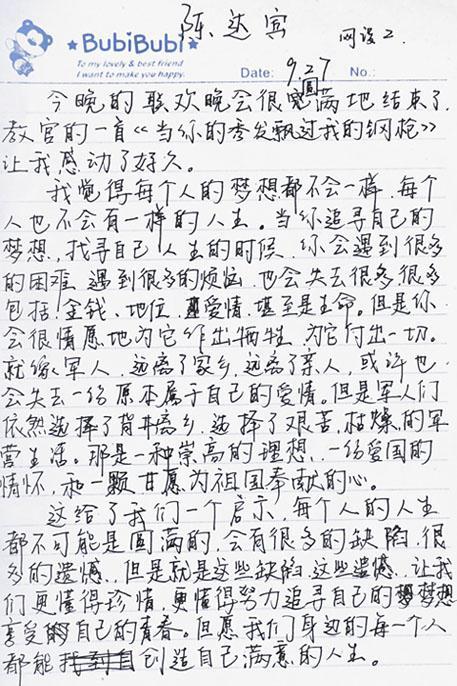 陈达宾
网设2.
BubiBubi
To my lovely & best friend
I want to make you happy.
Date: 9.27 No.:
今晚的联欢晚会很圆满地结束了
教官的一首《当你的秀发飘过我的钢枪》
让我感动了好久。
我觉得每个人的梦想都不会一样,每个
人也不会有一样的人生。当你追寻自己的
梦想,找寻自己人生的时候,你会遇到很多
的困难,遇到很多的烦恼,也会失去很多很多
包括:金钱、地位、爱情,甚至是生命。但是你
会很情愿地为它作出牺牲,为它付出一切。
就像军人,远离了家乡,远离了亲人,或许也
会失去一份原本属于自己的爱情。但是军人们
依然选择了背井离乡,选择了艰苦、枯燥的军
营生活。那是一种崇高的理想、一份爱国的
情怀,和一颗甘愿为祖国奉献的心。
这给了我们一个启示,每个人的人生
都不可能是圆满的,会有很多的缺陷,很
多的遗憾,但是就是这些缺陷,这些遗憾,让我
们更懂得珍惜,更懂得努力追寻自己的梦想
享受自己的青春。但愿我们身边的每一个人
都能创造自己满意的人生。